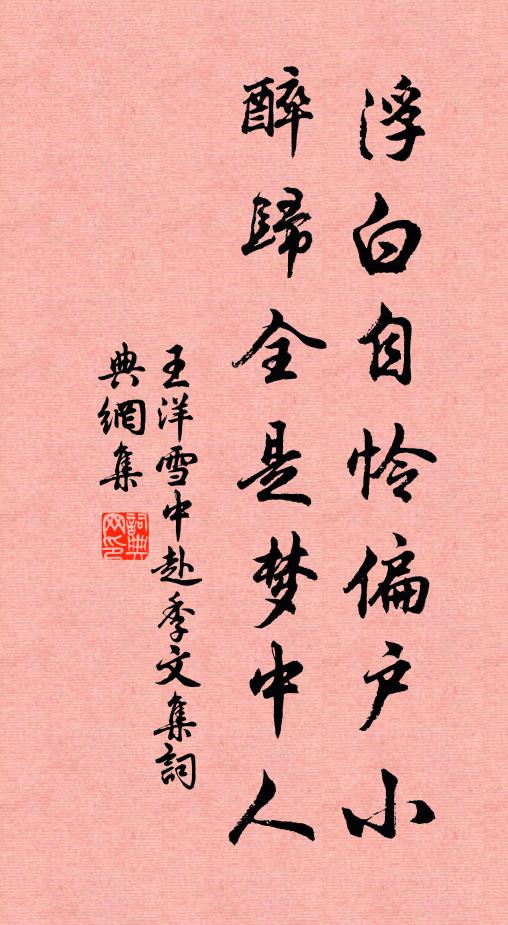 浮白自怜偏户小
醉歸全是梦中人
王洋雪中赴季文集詞
典網集
詞典网印